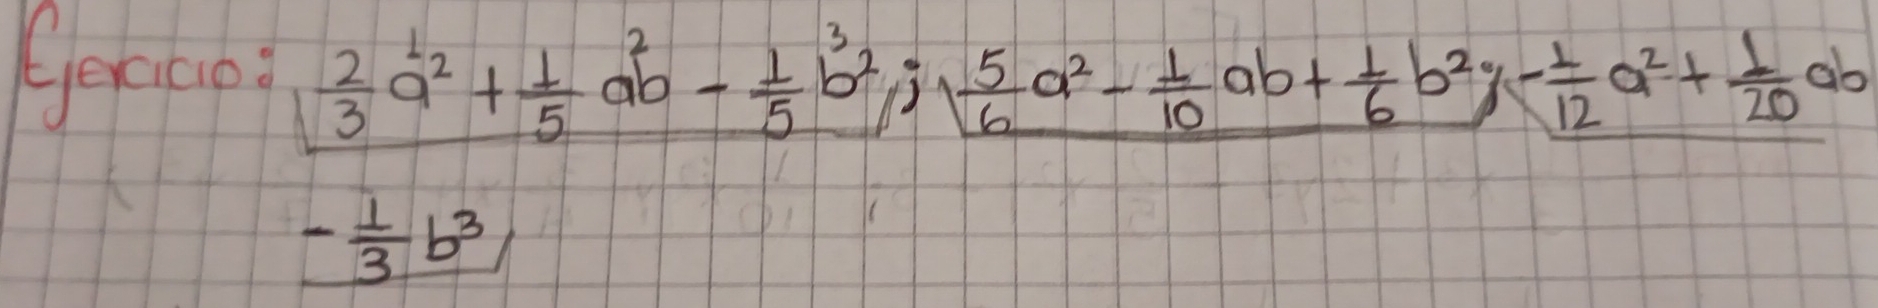 Ejercicio: 2/3 a² + 1/5 ab - 1/5 b²; 5/6 a² - 1/10 ab + 1/6 b²; -1/12 a² + 1/20 ab
- 1/3 b³